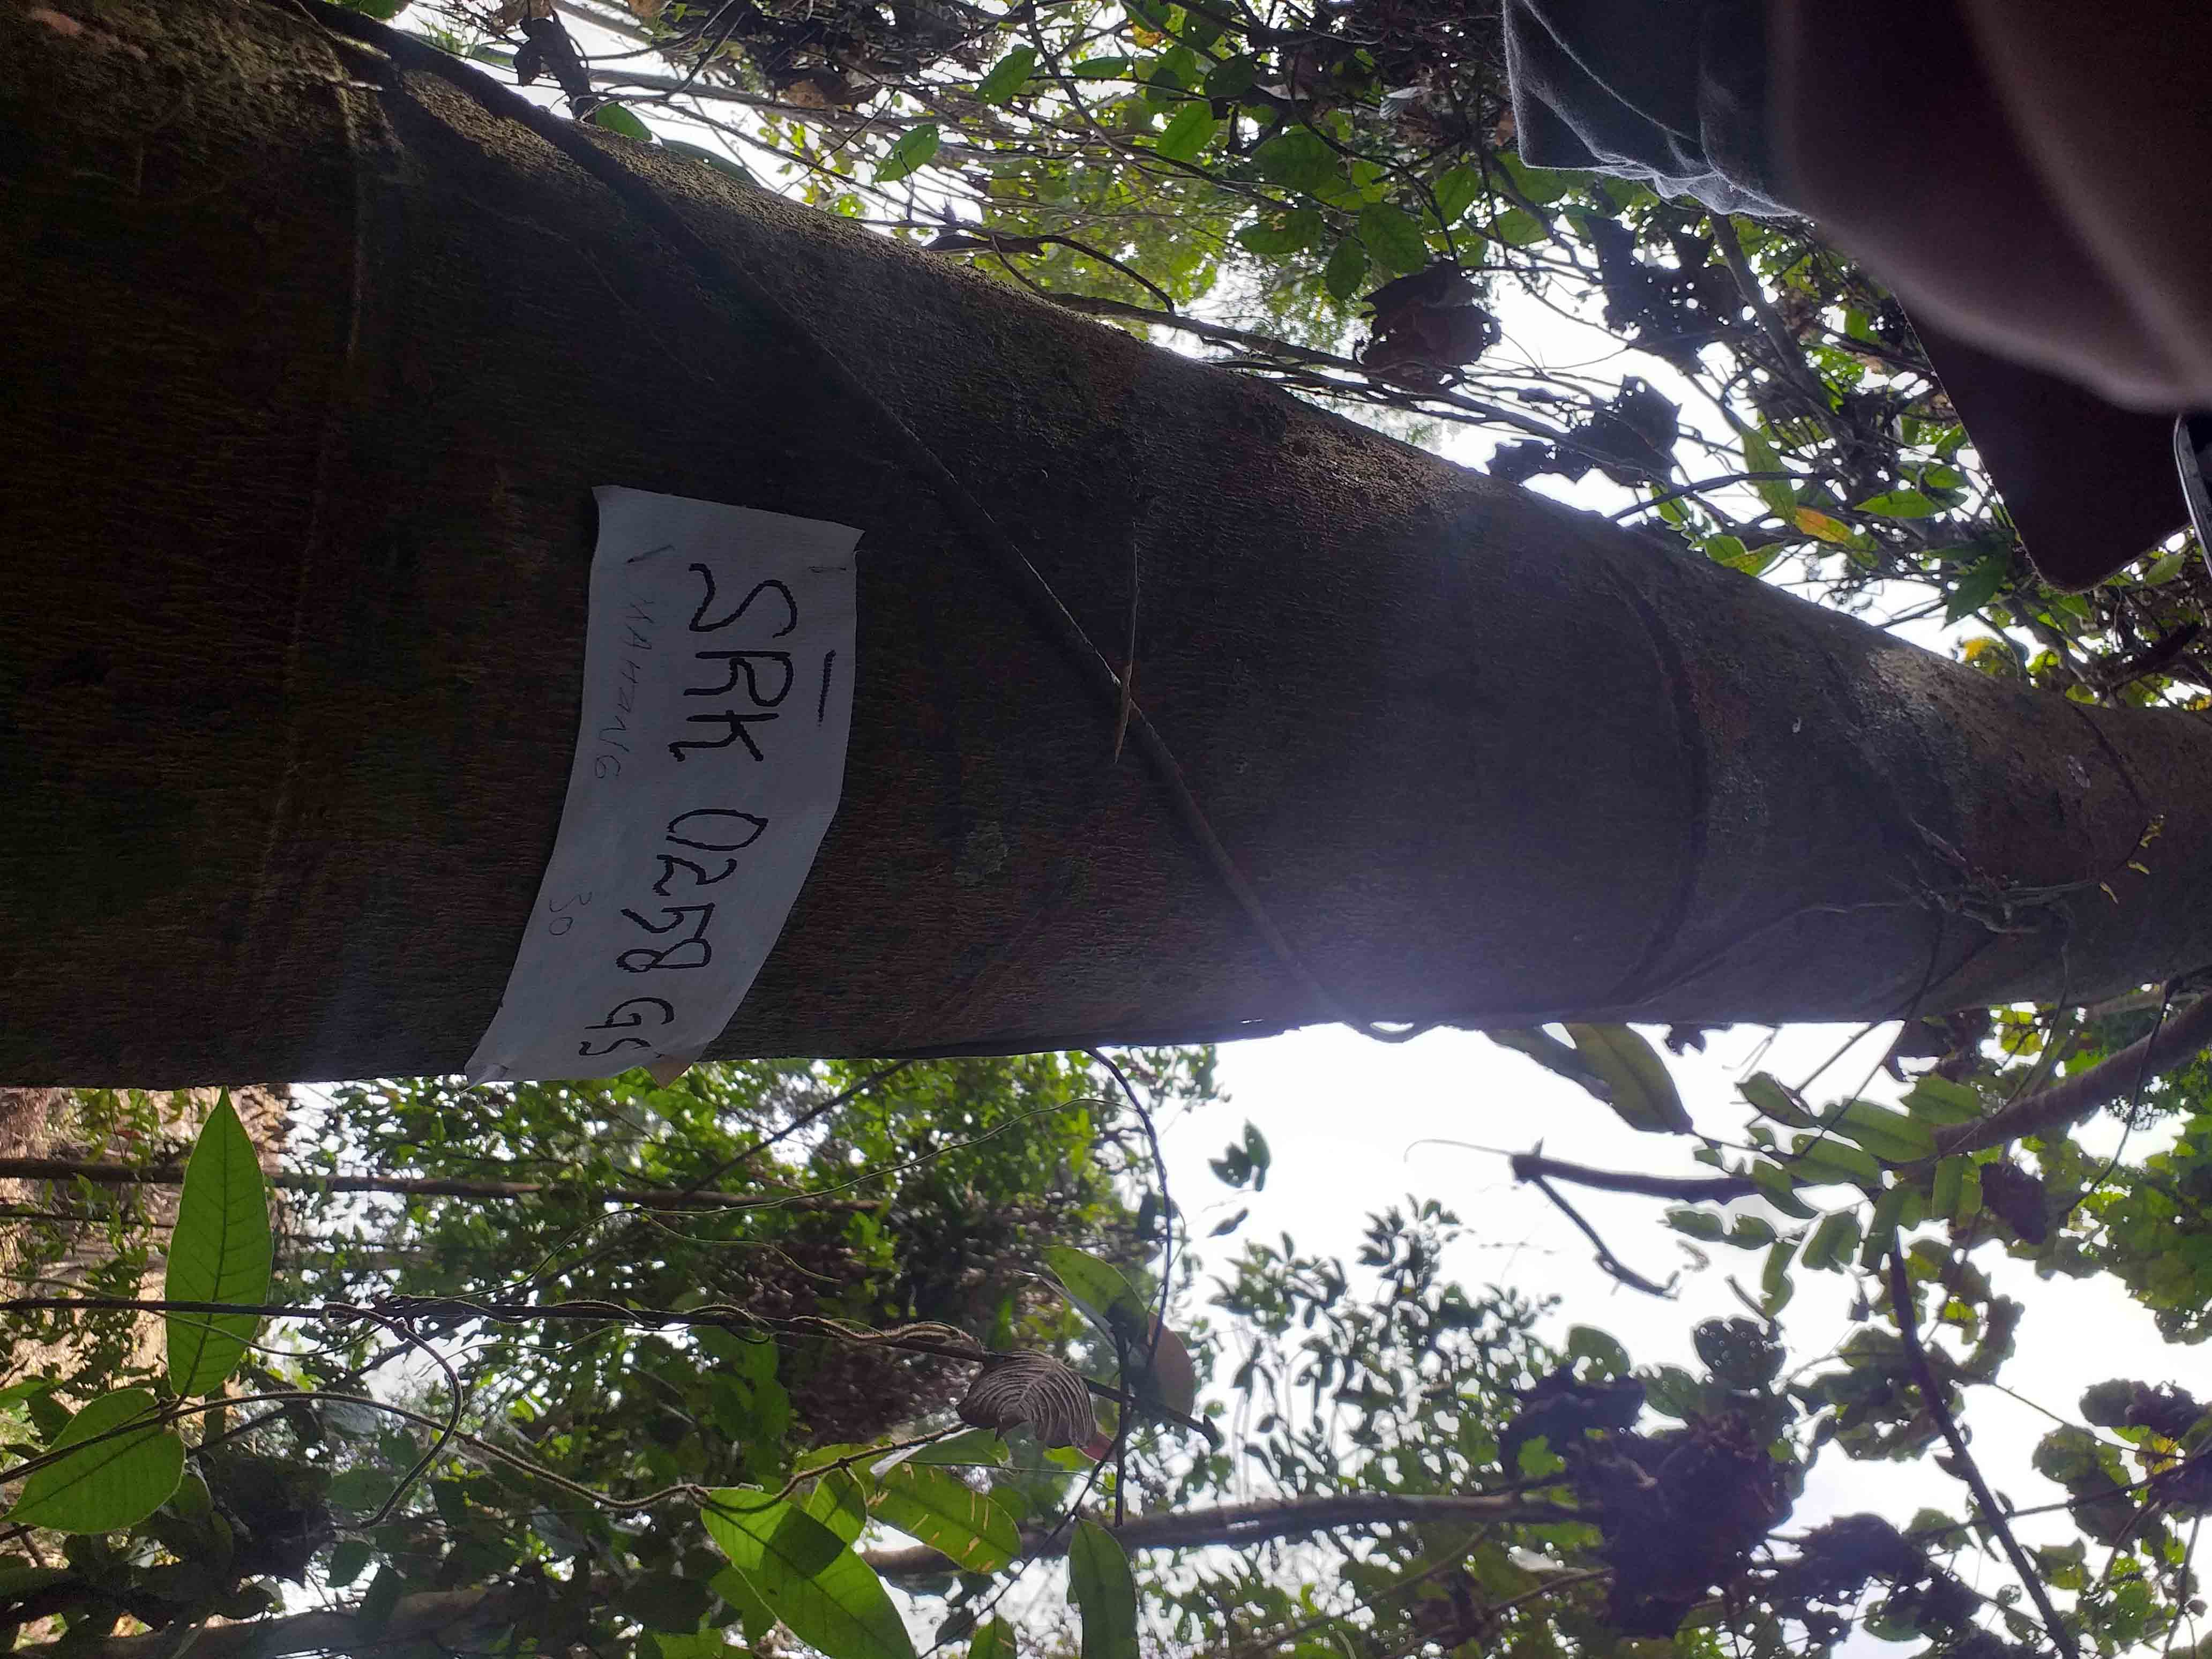 SRK 0258 GS
MAHANG
30